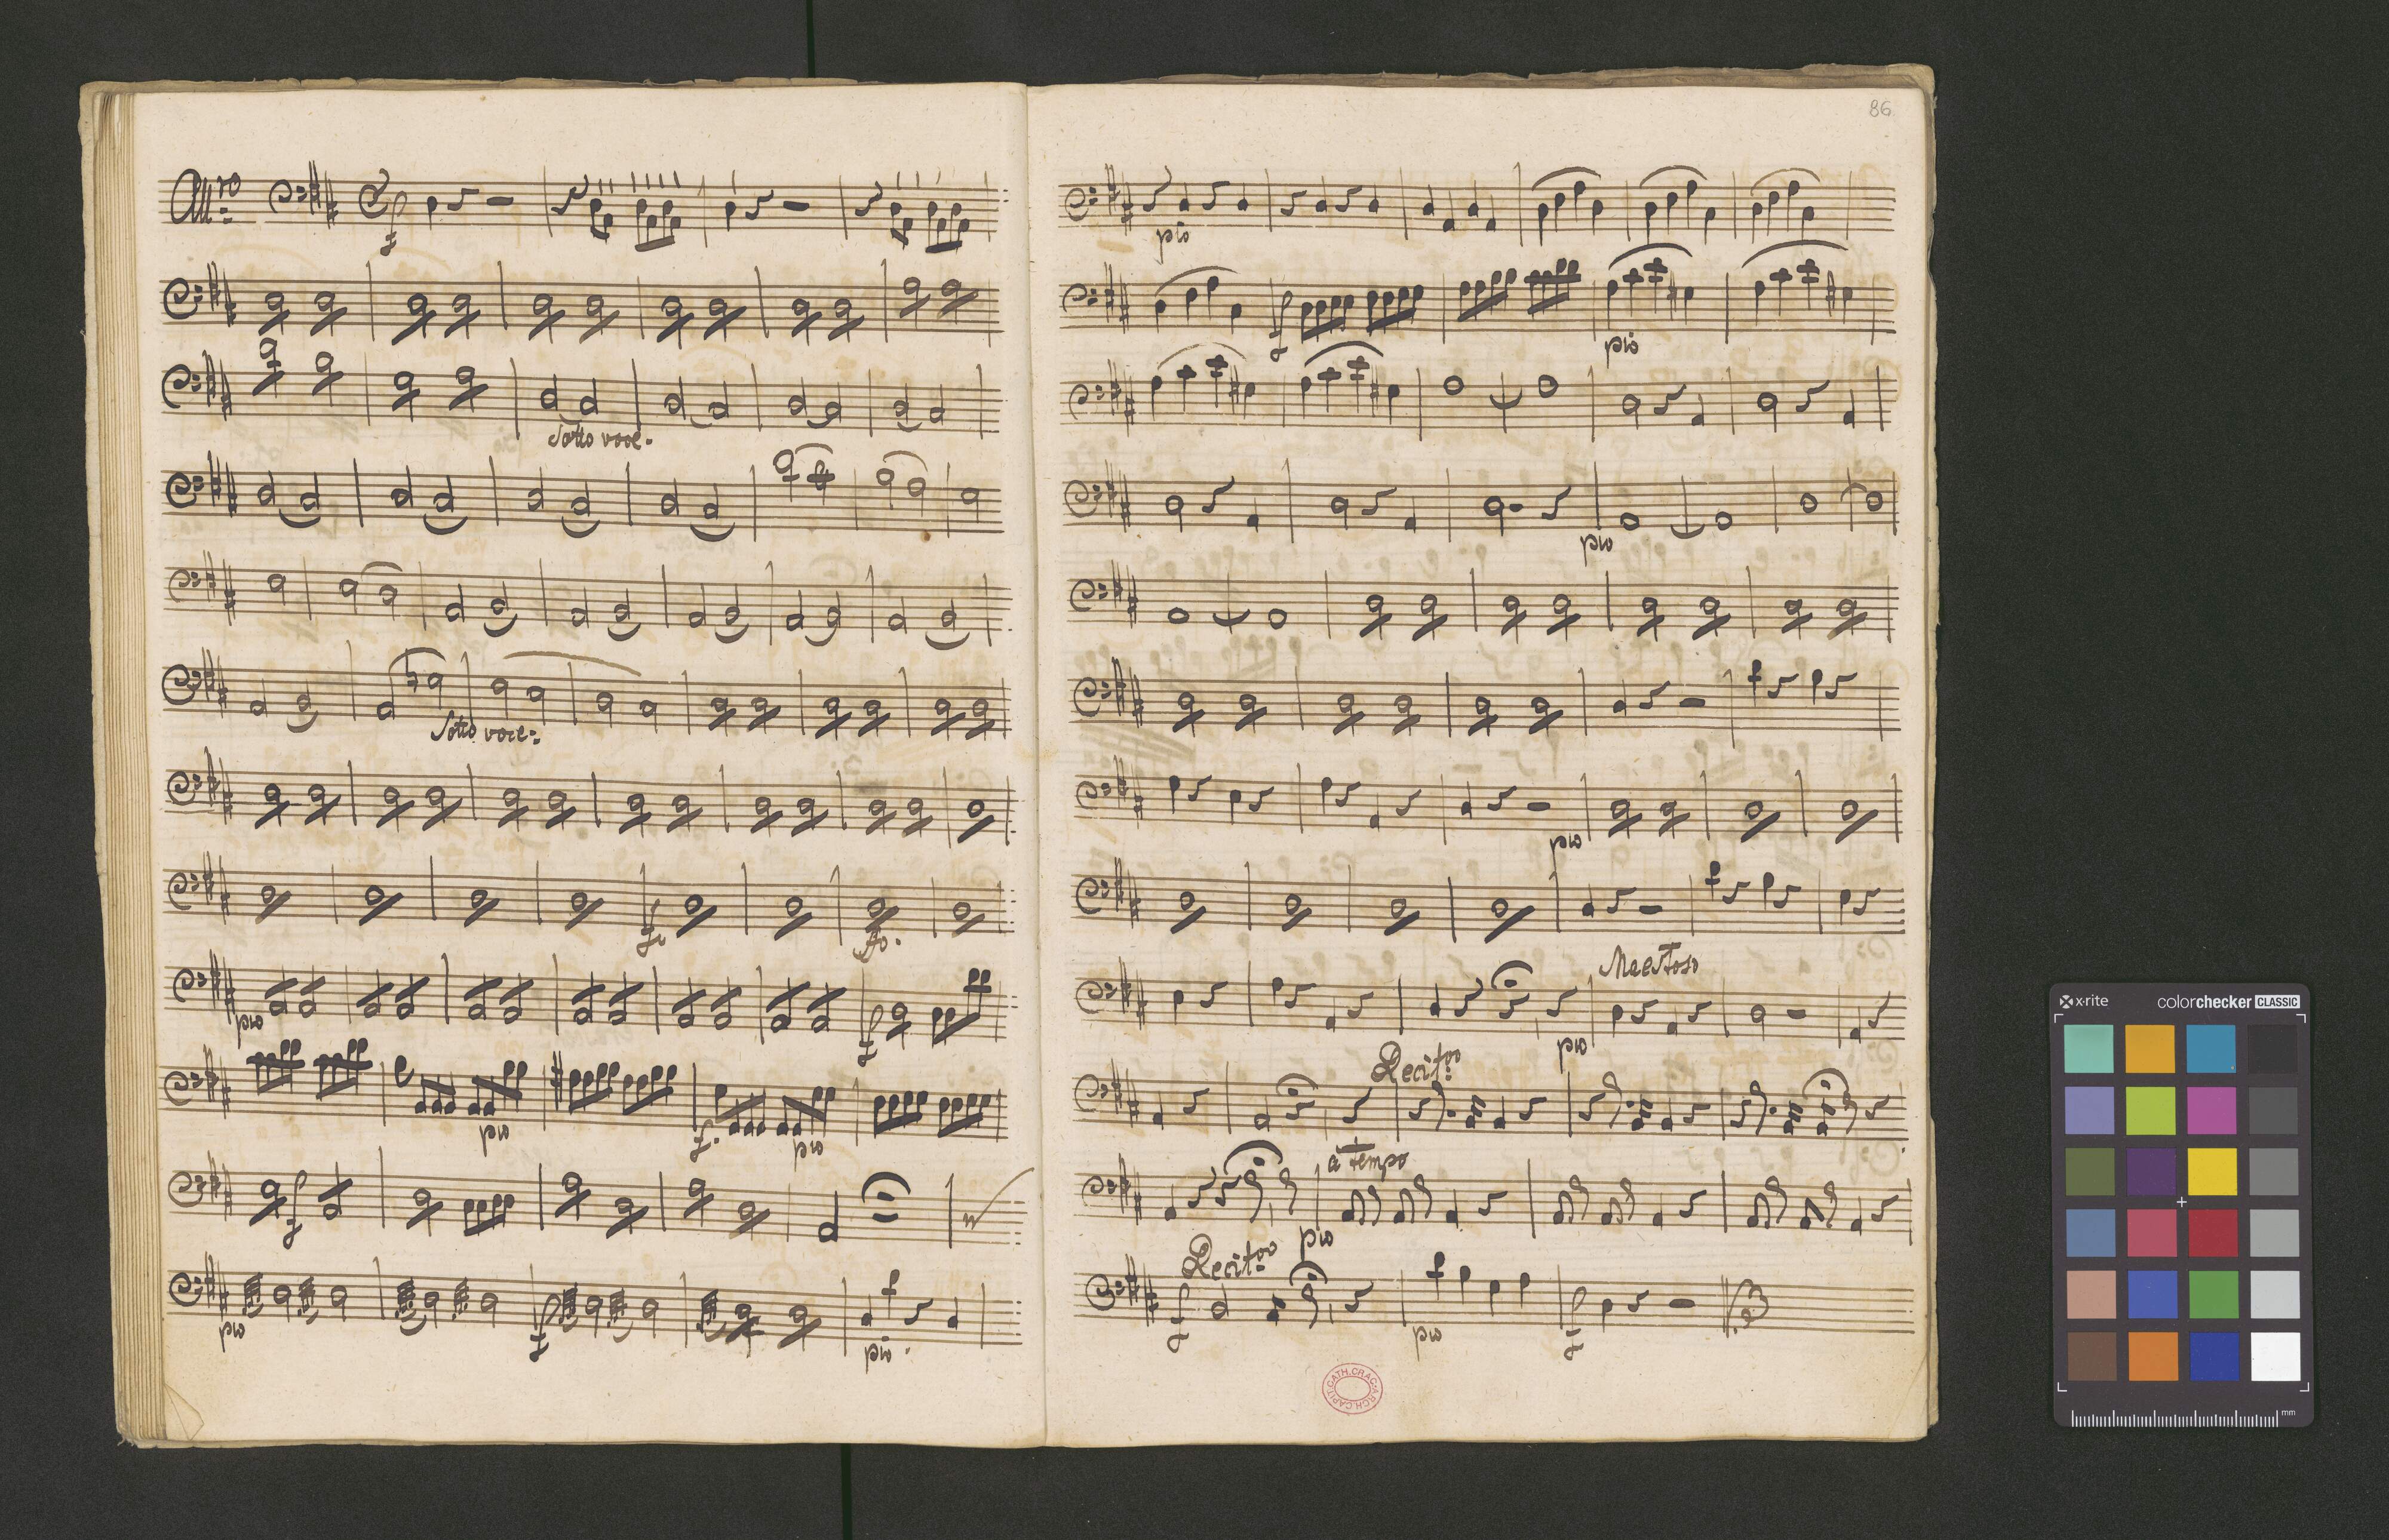 All.ro
f
Sotto voce.
Sotto voce:
fr
pio
f
pio
f.
pio
f
pio
f
pio.
86
pio
f
pio
pio
pio
Maestoso
pio
Recit.vo
a tempo
pio
Recit.vo
f
pio
f
ARCH.CAPIT.CATH.CRAC
x-rite
colorchecker CLASSIC
mm